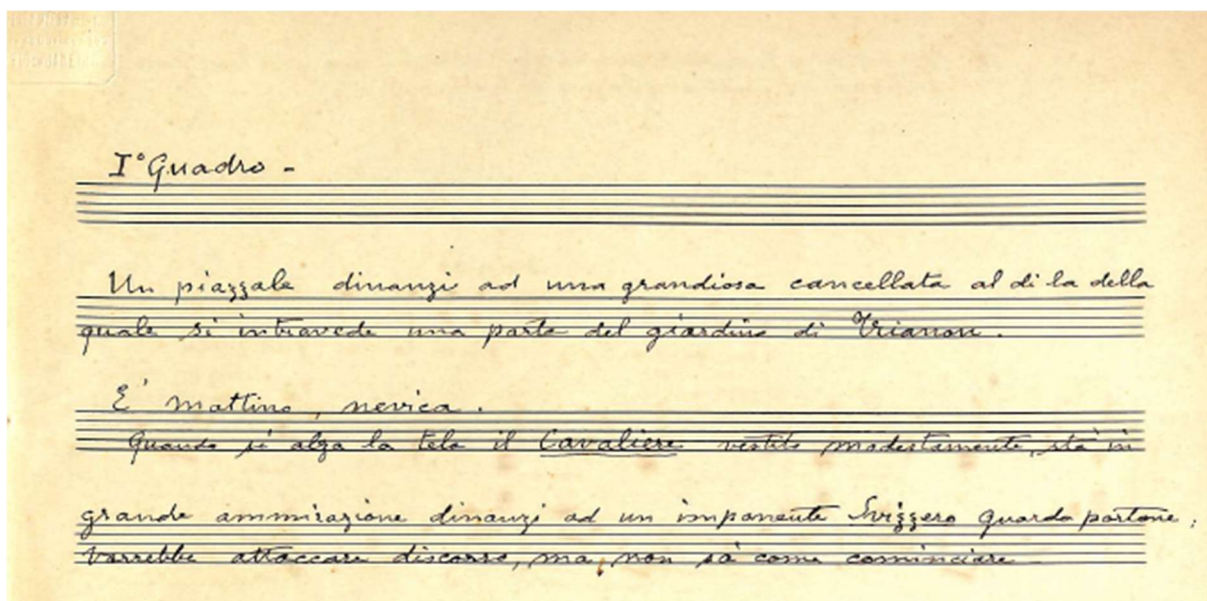 I° Quadro -
Un piazzale dinanzi ad una grandiosa cancellata al di la della
quale si intravede una parte del giardino di Trianon.
E' mattino, nevica.
Quando si alza la tela il Cavaliere vestito modestamente, stà in
grande ammirazione dinanzi ad un imponente Svizzero guarda portone;
vorrebbe attaccare discorso, ma, non sà come cominciare -